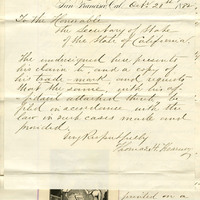 San Francisco, Cal. Oct. 28th 188
To the Honorable
The Secretary of State
of the State of California.
The undersigned has presented
his claim to, and a copy of
his trade-mark and requests
that the same, with his af-
fidavit attached thereto be
filed in accordance with the
law in such cases made and
provided.
Very Respectfully
Thomas H.
printed on a